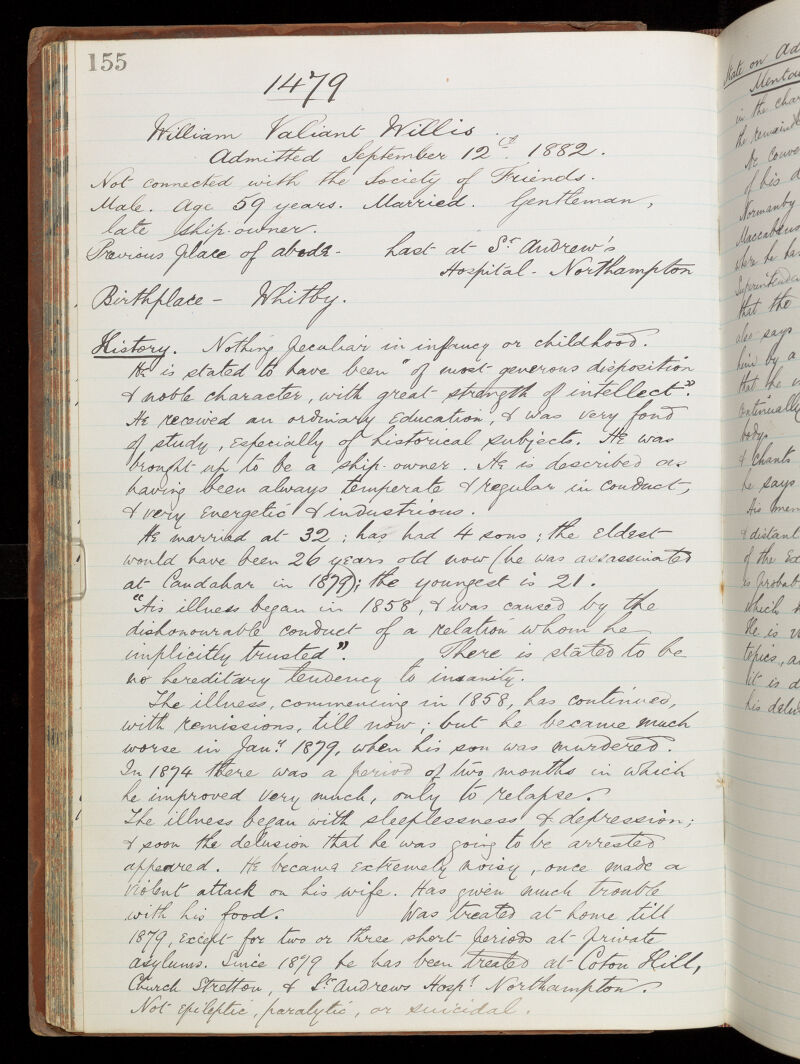 155
1479
William Valiant Willis.
Admitted September 12th. 1882.
Not connected with the Society of Friends.
Male. Age 59 years. Married. Gentleman,
late ship-owner.
Previous place of abode - Last at St Andrew's
Hospital - Northampton
Birthplace - Whitby.
History. Nothing peculiar in infancy or childhood.
He is stated to have been "of most generous disposition
& noble character, with great strength of intellect".
He received an ordinary Education, & was very fond
of study, especially of historical subjects. He was
brought up to be a ship-owner. He is described as
having been always temperate & regular in conduct,
& very Energetic & industrious.
He married at 32; has had 4 sons; the eldest
would have been 26 years old now (he was assassinated
at Candahar in 1879); the youngest is 21.
"His illness began in 1858, & was caused by the
dishonourable conduct of a relation whom he
implicitly trusted". There is stated to be
no hereditary tendency to insanity.
The illness, commencing in 1858, has continued,
with remissions, till now; but he became much
worse in Jany 1879, when his son was murdered.
In 1874 there was a period of two months in which
he improved very much, only to relapse.
The illness began with sleeplessness & depression;
& soon the delusion that he was going to be arrested
appeared. He became extremely noisy, once made a
violent attack on his wife. Has given much trouble
with his food. Was treated at home till
1879, except for two or three short periods at private
asylums. Since 1879 he has been treated at Coton Hill,
Church Stretton, & St Andrews Hospl Northampton.
Not Epileptic, paralytic, or suicidal.
State on Ad
in the
the
He
of his d
Normanby
Maccabeus
where he has
that the
also says
him by a
that he
body.
& Chants
he says
His mem
& distant
of the
is probab
which
He is
topics, a
it is d
his delu